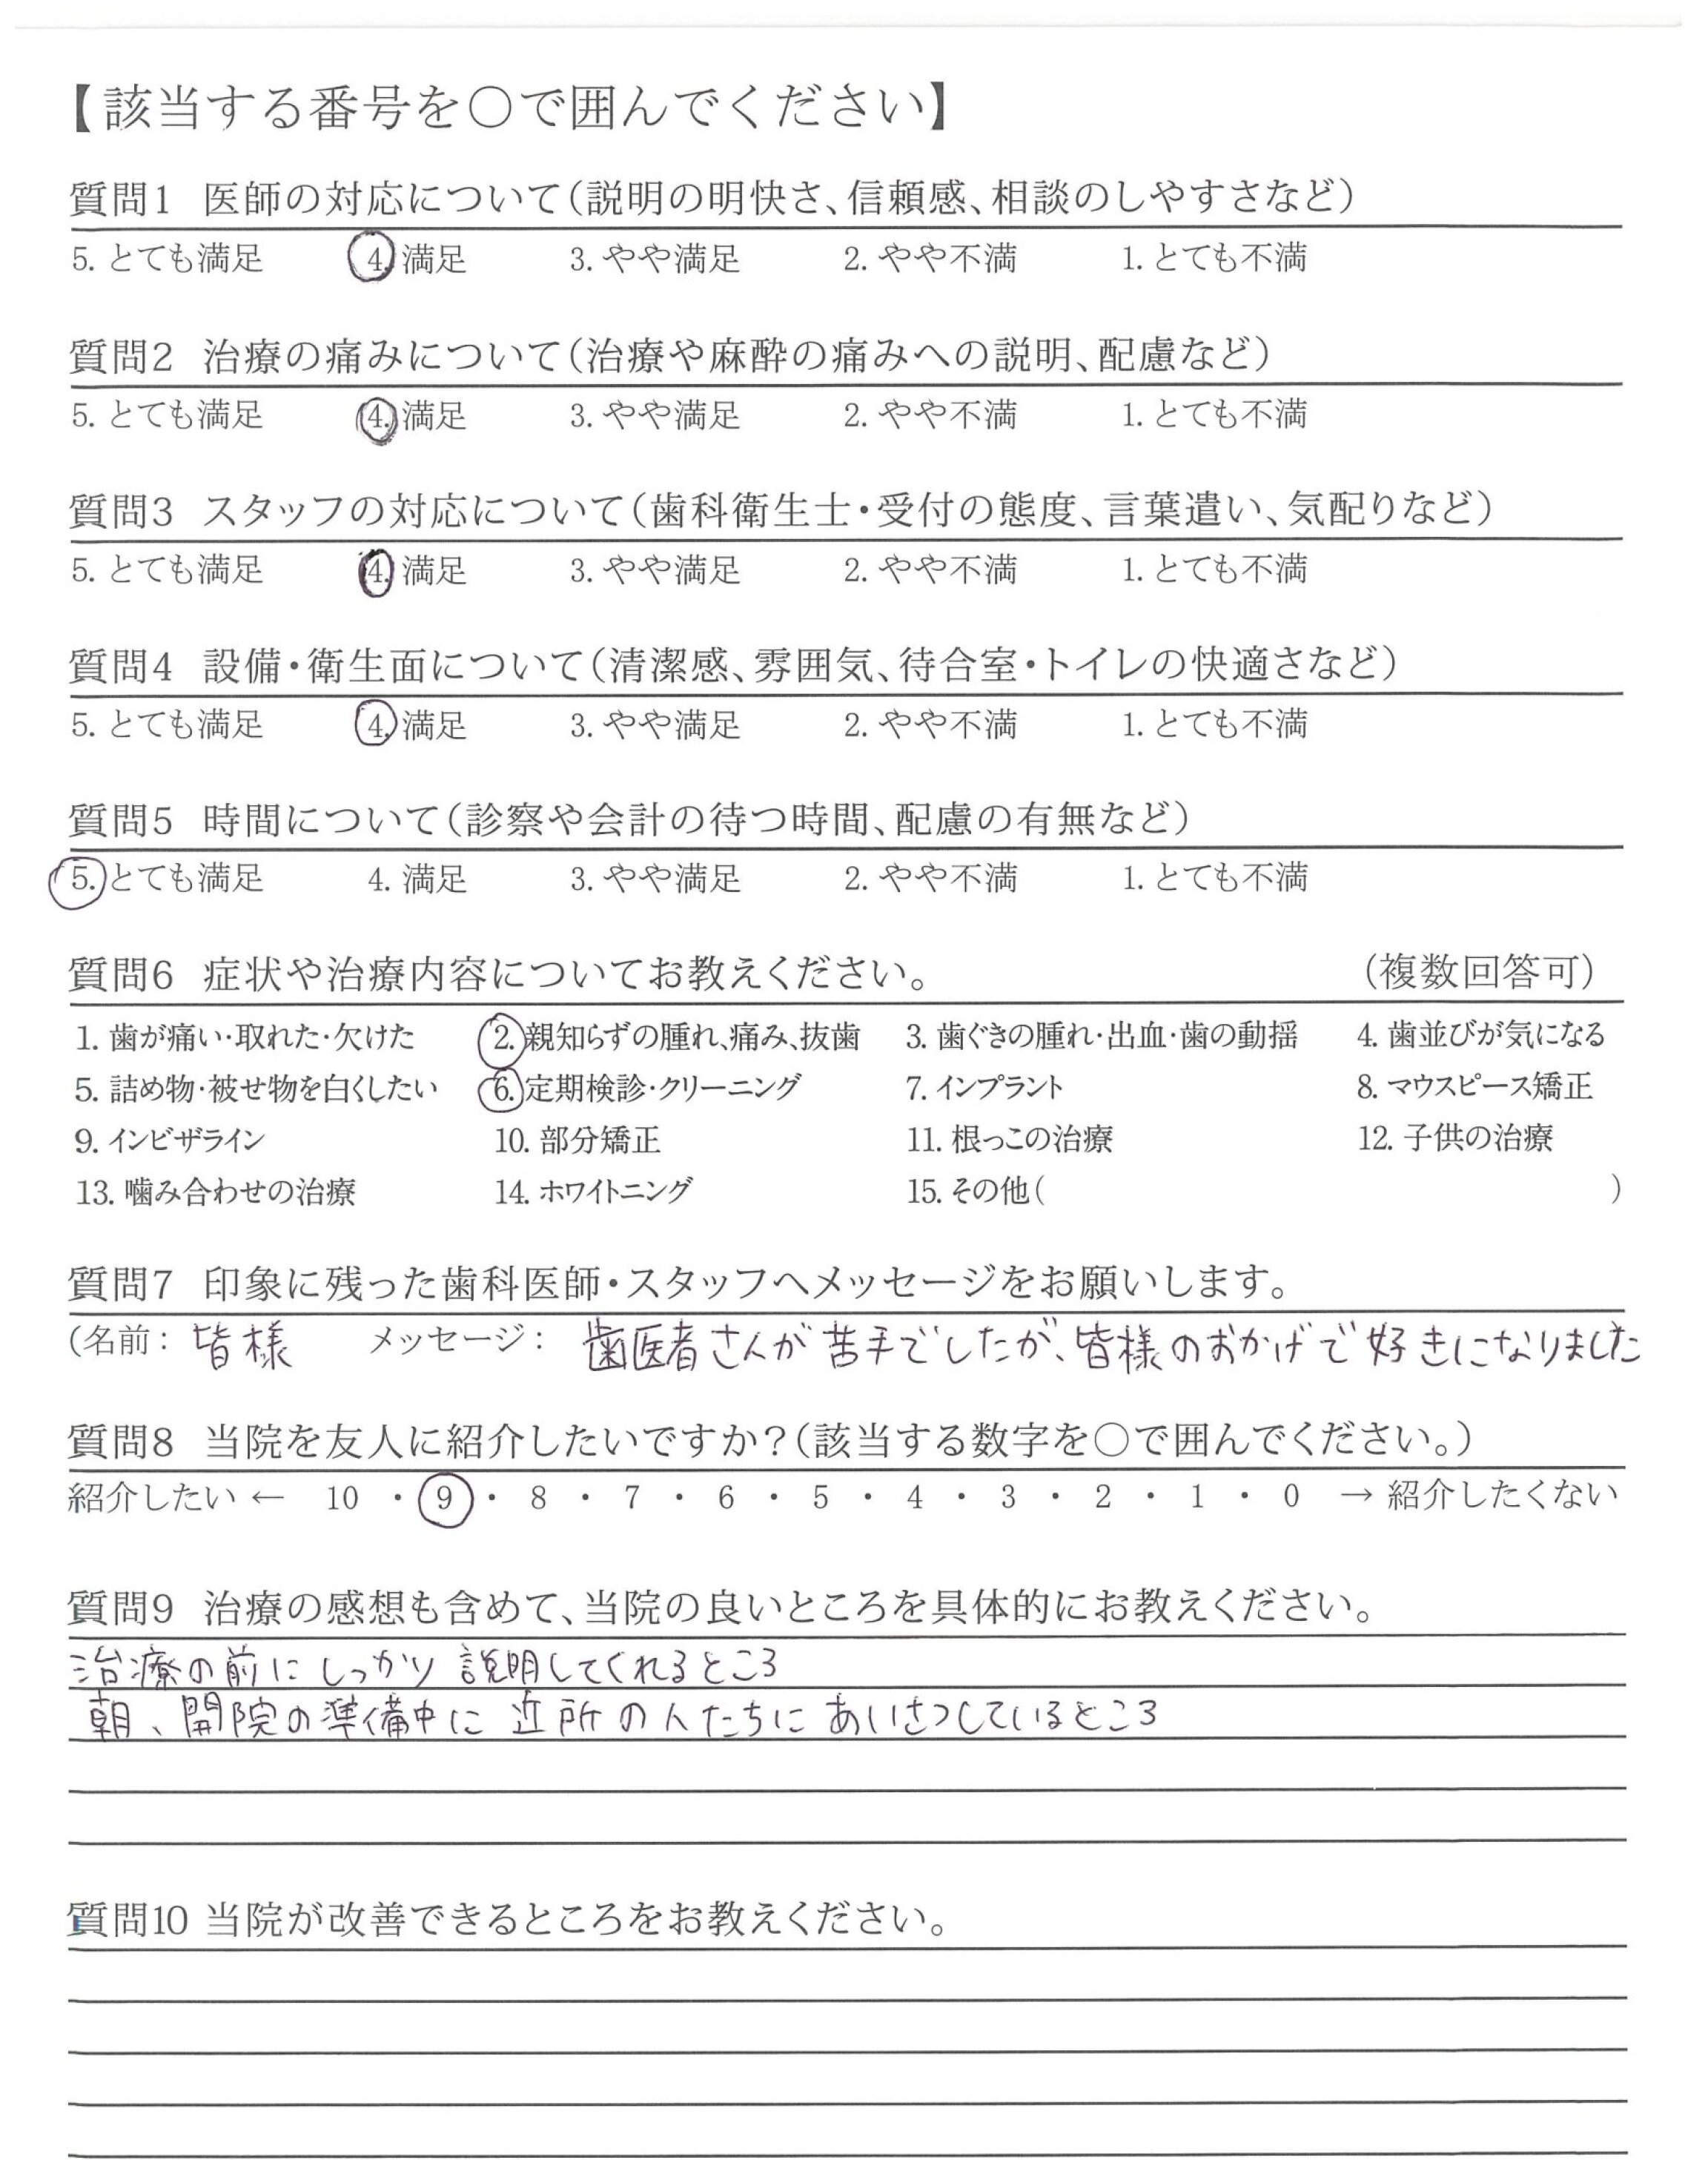 【該当する番号を○で囲んでください】
質問1 医師の対応について(説明の明快さ、信頼感、相談のしやすさなど)
5. とても満足 4. 満足 3. やや満足 2. やや不満 1. とても不満
質問2 治療の痛みについて(治療や麻酔の痛みへの説明、配慮など)
5. とても満足 4. 満足 3. やや満足 2. やや不満 1. とても不満
質問3 スタッフの対応について(歯科衛生士・受付の態度、言葉遣い、気配りなど)
5. とても満足 4. 満足 3. やや満足 2. やや不満 1. とても不満
質問4 設備・衛生面について(清潔感、雰囲気、待合室・トイレの快適さなど)
5. とても満足 4. 満足 3. やや満足 2. やや不満 1. とても不満
質問5 時間について(診察や会計の待つ時間、配慮の有無など)
5. とても満足 4. 満足 3. やや満足 2. やや不満 1. とても不満
質問6 症状や治療内容についてお教えください。 (複数回答可)
1. 歯が痛い・取れた・欠けた 2. 親知らずの腫れ、痛み、抜歯 3. 歯ぐきの腫れ・出血・歯の動揺 4. 歯並びが気になる
5. 詰め物・被せ物を白くしたい 6. 定期検診・クリーニング 7. インプラント 8. マウスピース矯正
9. インビザライン 10. 部分矯正 11. 根っこの治療 12. 子供の治療
13. 噛み合わせの治療 14. ホワイトニング 15. その他( )
質問7 印象に残った歯科医師・スタッフへメッセージをお願いします。
(名前: 皆様 メッセージ: 歯医者さんが苦手でしたが、皆様のおかげで好きになりました
質問8 当院を友人に紹介したいですか?(該当する数字を○で囲んでください。)
紹介したい ← 10 ・ 9 ・ 8 ・ 7 ・ 6 ・ 5 ・ 4 ・ 3 ・ 2 ・ 1 ・ 0 → 紹介したくない
質問9 治療の感想も含めて、当院の良いところを具体的にお教えください。
治療の前にしっかり説明してくれるところ
朝、開院の準備中に近所の人たちにあいさつしているところ
質問10 当院が改善できるところをお教えください。